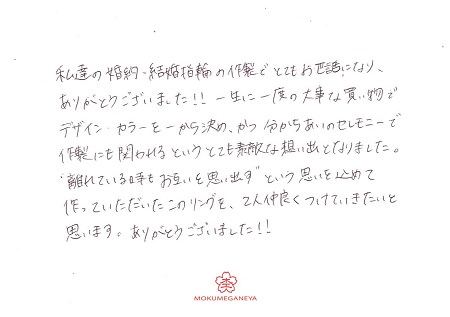 私達の婚約・結婚指輪の作製でとてもお世話になり、
ありがとうございました!! 一生に一度の大事な買い物で
デザイン・カラーを一から決め、かつ 分かちあいのセレモニーで
作製にも関われるというとても素敵な想い出となりました。
"離れている時もお互いを思い出す"という思いを込めて
作っていただいたこのリングを、2人仲良くつけていきたいと
思います。ありがとうございました!!
MOKUMEGANEYA